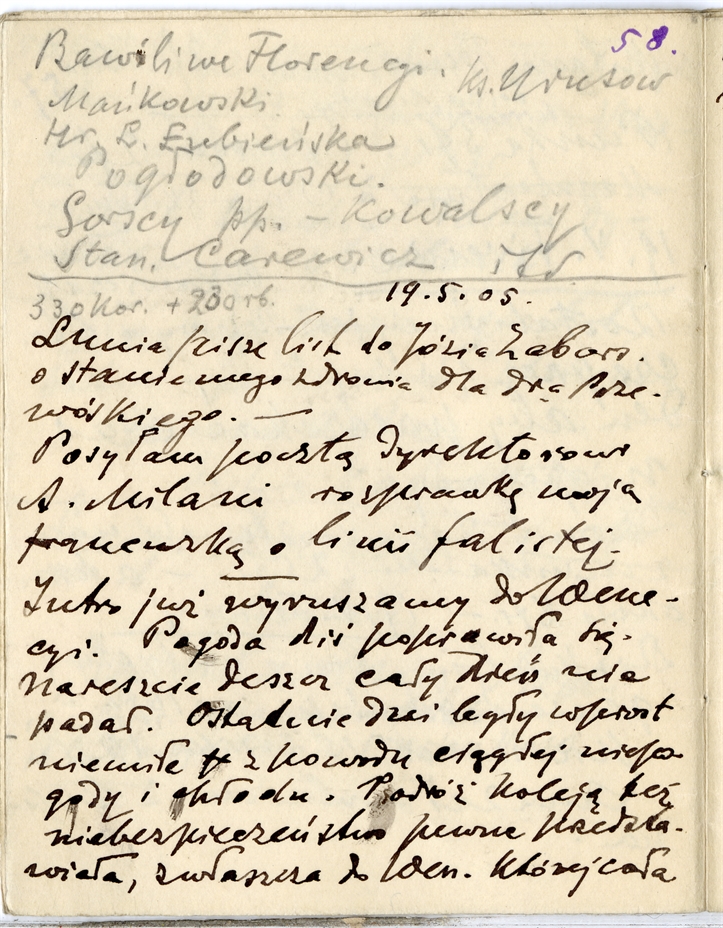 58.
Bawili we Florencyi. ks.
Mańkowski
Hr. L. Łubieńska
Pogłodowski.
Gorscy pp. – Kowalscy
Stan. Carewicz
330 Kor. + 230 rb.
19.5.05.
Lunia pisze list do Józia Zabors.
o stanie mego zdrowia dla dra Prze-
wóskiego. —
Posyłam pocztą Dyrektorowi
A. Milani rozprawkę moją
francuzką o linii falistej.
Jutro już wyruszamy do Wene-
cyi. Pogoda dziś poprawiła się.
Nareszcie deszcz cały dzień nie
padał. Ostatnie dni były wprost
niemiłe z powodu ciągłej niepo-
gody i chłodu. Podróż koleją też
niebezpieczeństwo pewne przedsta-
wiała, zwłaszcza do Wen. której cała